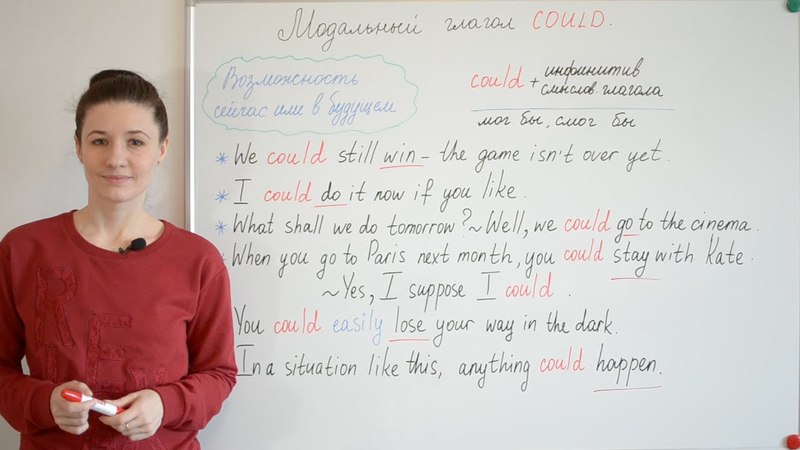 Модальный глагол COULD.
Возможность
сейчас или в будущем
could + инфинитив
смыслов. глагола
мог бы, смог бы
* We could still win - the game isn't over yet.
* I could do it now if you like.
* What shall we do tomorrow? ~ Well, we could go to the cinema.
* When you go to Paris next month, you could stay with Kate.
~ Yes, I suppose I could.
You could easily lose your way in the dark.
In a situation like this, anything could happen.